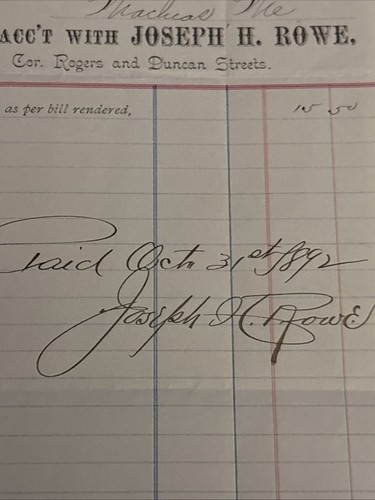 Machias Me
ACC'T WITH JOSEPH H. ROWE,
Cor. Rogers and Duncan Streets.
as per bill rendered, 15 50
Paid Octr 31st 1892
Joseph H. Rowe